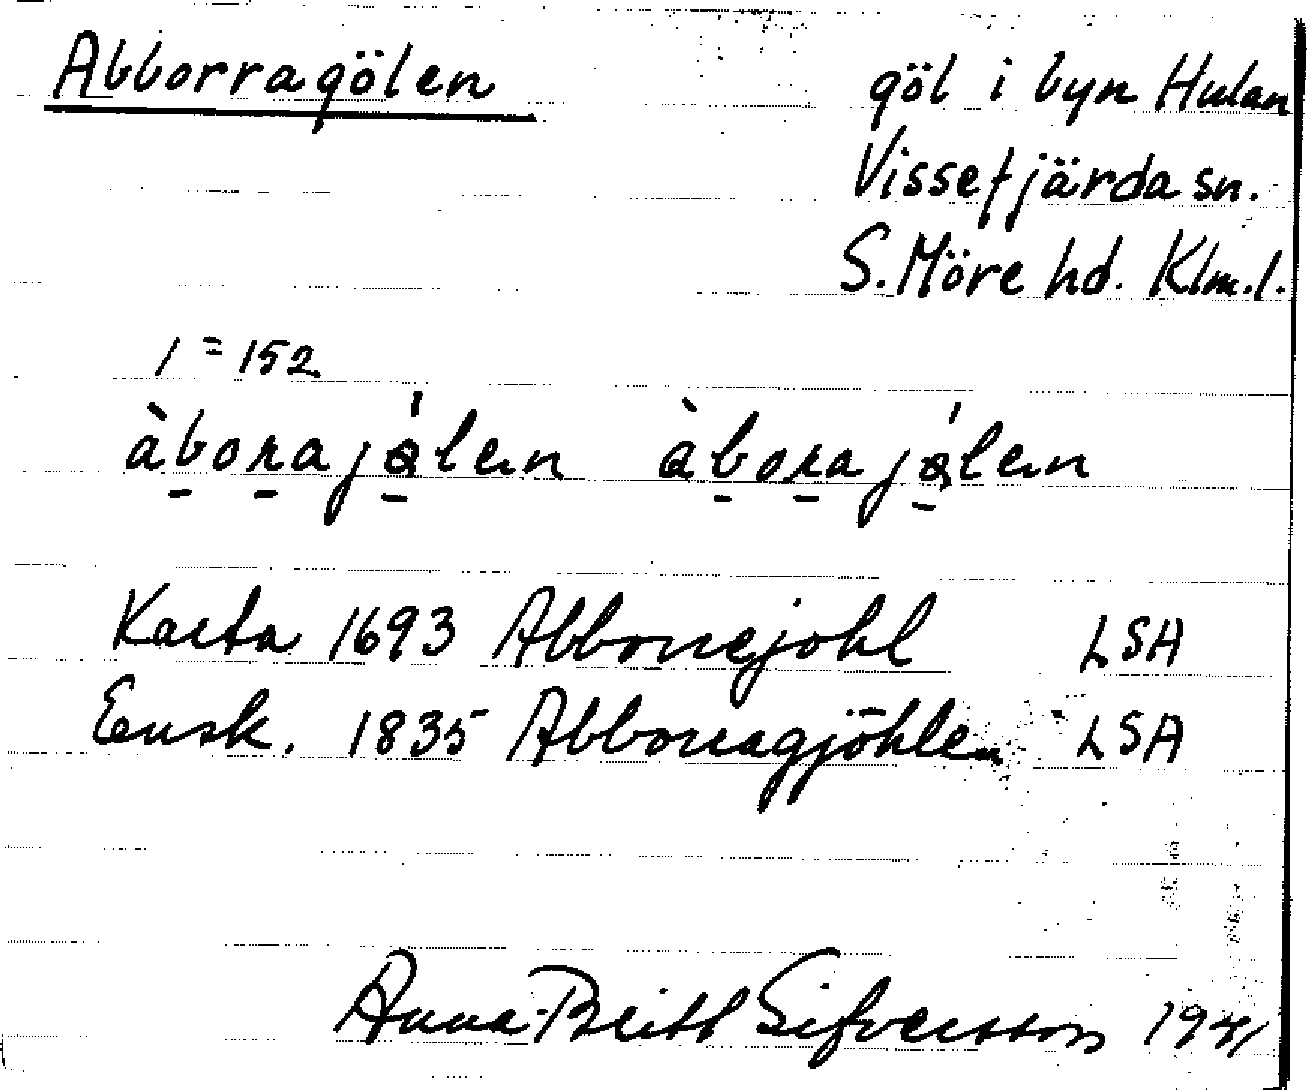 Abborragölen
göl i byn Hulan
Vissefjärda sn.
S. Möre hd. Klm.l.
1 = 152
àborajǻlen àborajǻlen
Karta 1693 Abborrejöhl LSA
Ensk. 1835 Abborragjöhlen LSA
Anna-Britt Sifversson